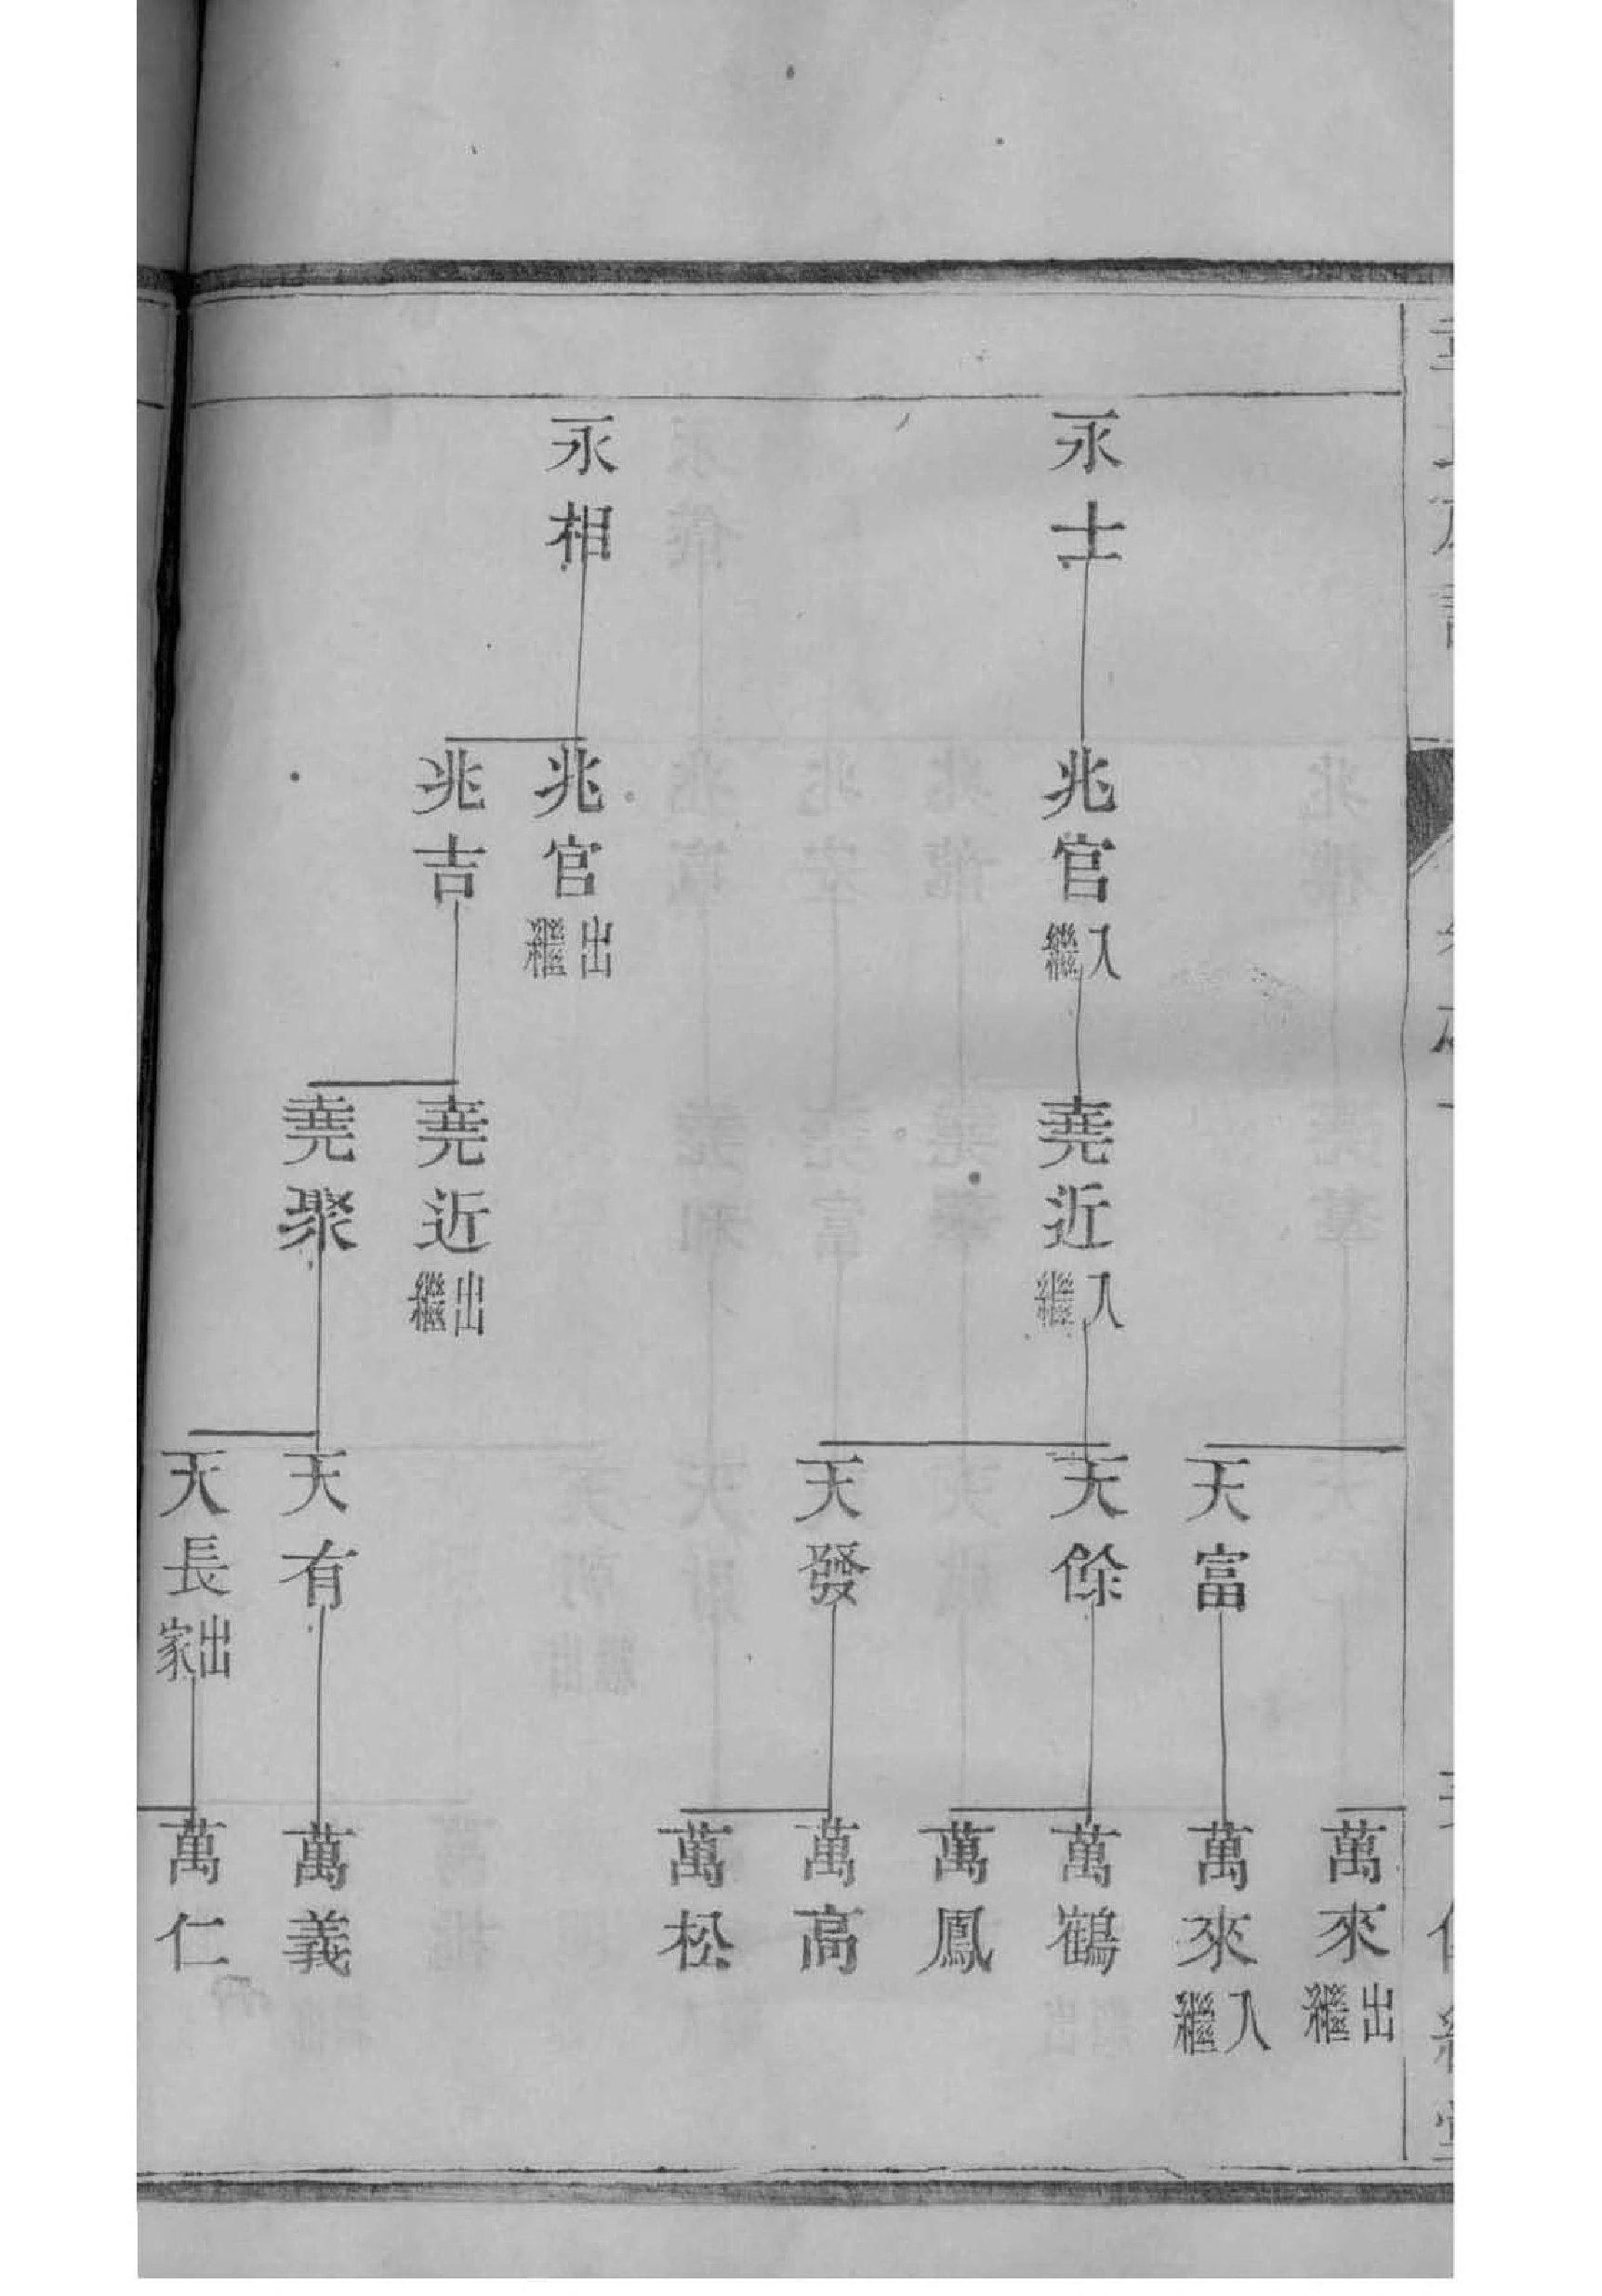 萬來出繼
天富
萬來入繼
永士
兆官入繼
堯近入繼
天餘
萬鶴
萬鳳
天發
萬高
萬松
永相
兆官出繼
兆吉
堯近出繼
堯聚
天有
萬義
天長出家
萬仁